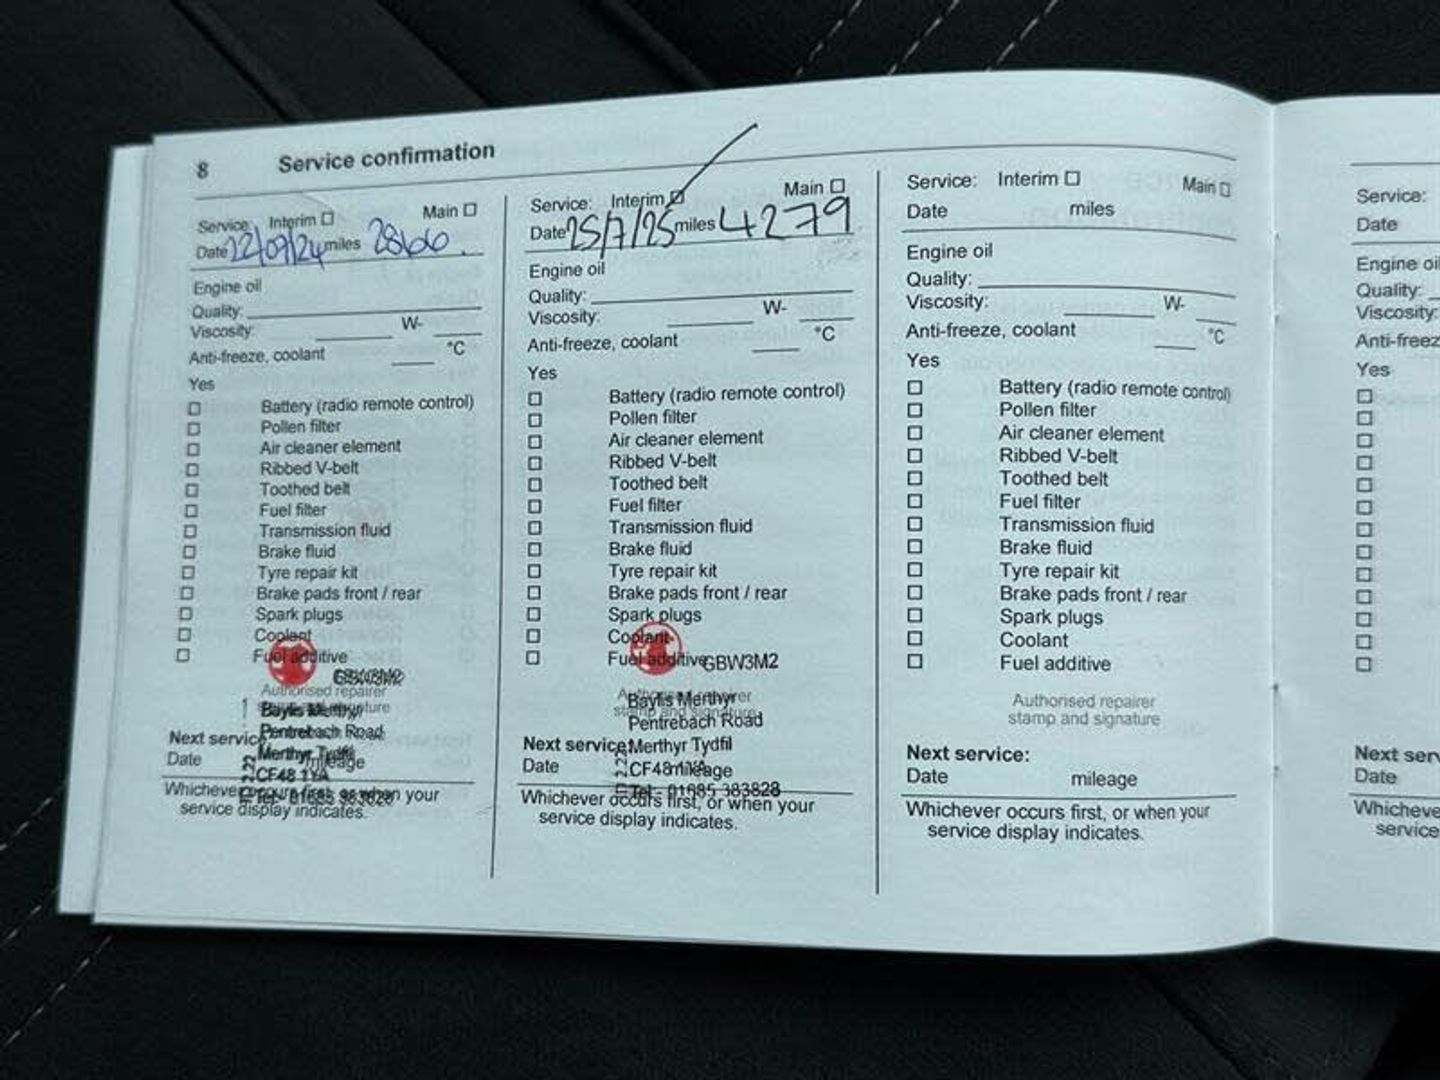 8 Service confirmation
Service: Interim Main
Date 22/09/24 miles 2866.
Engine oil
Quality:
Viscosity: W-
Anti-freeze, coolant °C
Yes
Battery (radio remote control)
Pollen filter
Air cleaner element
Ribbed V-belt
Toothed belt
Fuel filter
Transmission fluid
Brake fluid
Tyre repair kit
Brake pads front / rear
Spark plugs
Coolant
Fuel additive
GBW3M2
Authorised repairer
stamp and signature
Baylis Merthyr
Pentrebach Road
Merthyr Tydfil
CF48 1YA
Tel:- 01685 383828
Next service:
Date mileage
Whichever occurs first, or when your
service display indicates.
Service: Interim Main
Date 25/7/25 miles 4279
Engine oil
Quality:
Viscosity: W-
Anti-freeze, coolant °C
Yes
Battery (radio remote control)
Pollen filter
Air cleaner element
Ribbed V-belt
Toothed belt
Fuel filter
Transmission fluid
Brake fluid
Tyre repair kit
Brake pads front / rear
Spark plugs
Coolant
Fuel additive
GBW3M2
Authorised repairer
stamp and signature
Baylis Merthyr
Pentrebach Road
Merthyr Tydfil
CF48 1YA
Tel:- 01685 383828
Next service:
Date mileage
Whichever occurs first, or when your
service display indicates.
Service: Interim Main
Date miles
Engine oil
Quality:
Viscosity: W-
Anti-freeze, coolant °C
Yes
Battery (radio remote control)
Pollen filter
Air cleaner element
Ribbed V-belt
Toothed belt
Fuel filter
Transmission fluid
Brake fluid
Tyre repair kit
Brake pads front / rear
Spark plugs
Coolant
Fuel additive
Authorised repairer
stamp and signature
Next service:
Date mileage
Whichever occurs first, or when your
service display indicates.
Service:
Date
Engine oil
Quality:
Viscosity:
Anti-freez
Yes
Next ser
Date
Whicheve
service